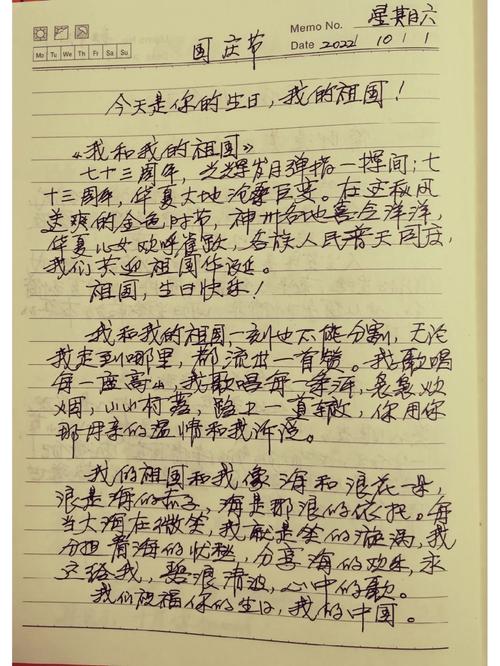 星期六
Memo No.
Mo Tu We Th Fr Sa Su
Date 2022 / 10 / 1
国庆节
今天是你的生日，我的祖国！
《我和我的祖国》
七十三周年，光辉岁月弹指一挥间；七
十三周年，华夏大地沧桑巨变。在这秋风
送爽的金色时节，神州各地喜气洋洋，
华夏儿女欢呼雀跃，各族人民普天同庆，
我们共迎祖国华诞。
祖国，生日快乐！
我和我的祖国一刻也不能分割，无论
我走到哪里，都流出一首赞。我歌唱
每一座高山，我歌唱每一条河，袅袅炊
烟，小小村落，路上一道辙，你用你
那母亲的温情和我诉说。
我的祖国和我像海和浪花一朵，
浪是海的赤子，海是那浪的依托。每
当大海在微笑，我就是笑的漩涡，我
分担着海的忧愁，分享海的欢乐，永
给我，碧浪清波，心中的歌。
我们祝福你的生日，我的中国。